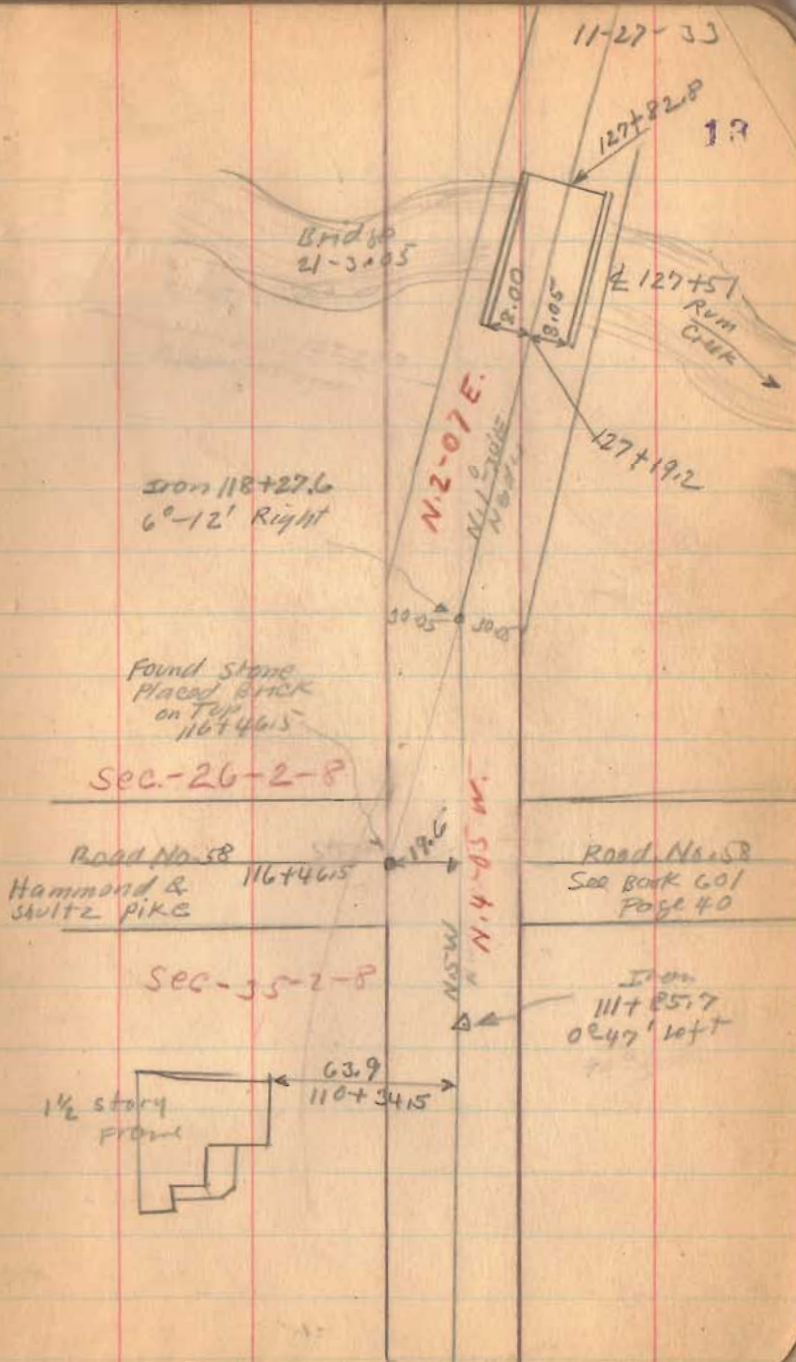 11-27-33
13
127+82.8
Bridge
21-3.05
8.00
8.05
℄ 127+51
Rum
Creek
127+19.2
N.2-07 E.
N.1°-30'E
Iron 118+27.6
6°-12' Right
30.05
30.05
Found Stone
Placed Brick
on Top
116+46.5
Sec.-26-2-8
19.6
Road No.58
116+46.5
Hammond &
Shultz Pike
Road No.58
See Book 601
Page 40
N.4-05 W.
N.5W
Sec-35-2-8
Iron
111+85.7
0°47' Left
63.9
110+34.5
1½ story
Frame